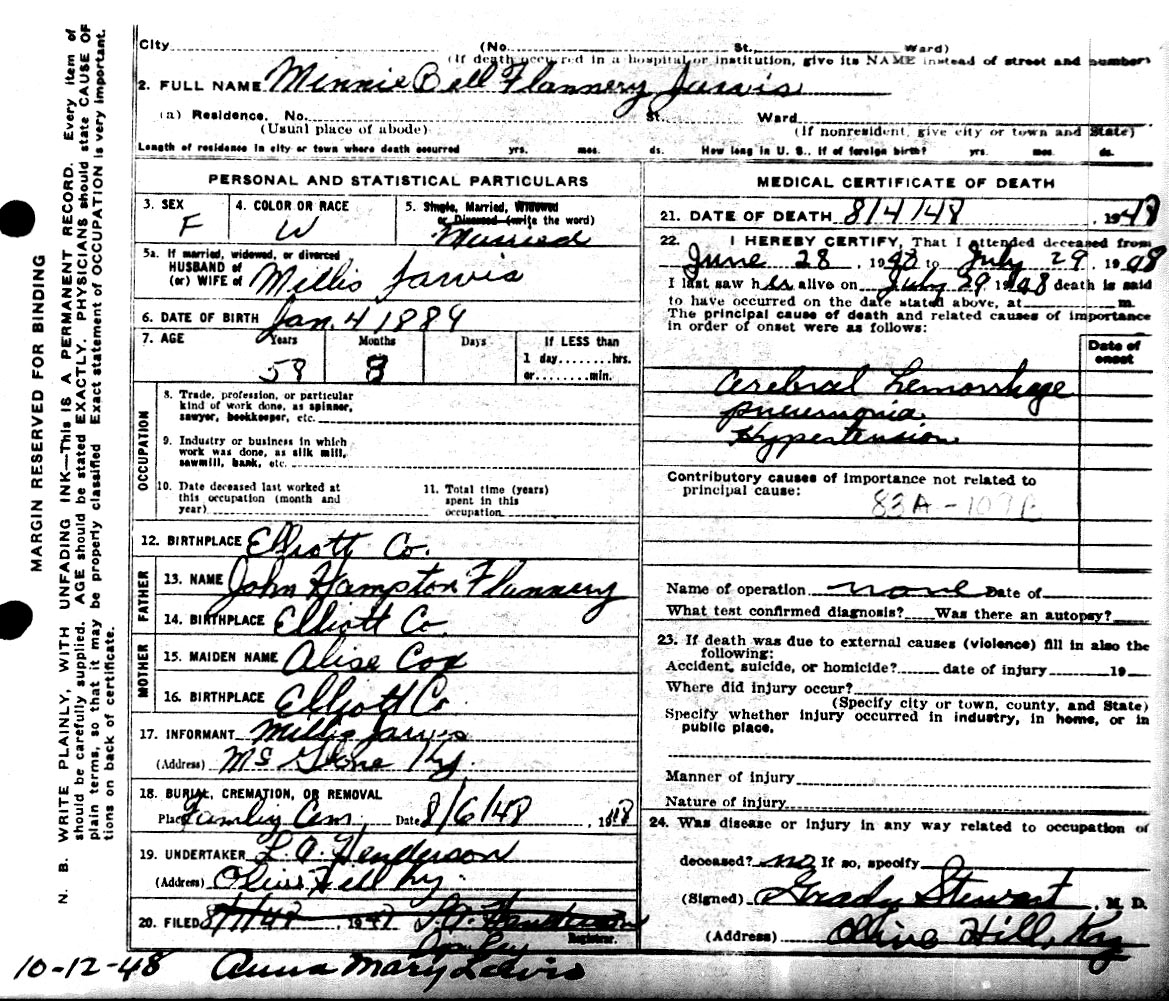 City (No. St., Ward)
(If death occurred in a hospital or institution, give its NAME instead of street and number)
2. FULL NAME Minnie Bell Flannery Jarvis
(a) Residence. No. St. Ward
(Usual place of abode) (If nonresident, give city or town and State)
Length of residence in city or town where death occurred yrs. mos. ds. How long in U. S., if of foreign birth? yrs. mos. ds.
PERSONAL AND STATISTICAL PARTICULARS
3. SEX F
4. COLOR OR RACE W
5. Single, Married, Widowed
or Divorced (write the word)
Married
5a. If married, widowed, or divorced
HUSBAND of
(or) WIFE of Millis Jarvis
6. DATE OF BIRTH Jan. 4 1889
7. AGE Years Months Days If LESS than
58 8 1 day........hrs.
or........min.
OCCUPATION
8. Trade, profession, or particular
kind of work done, as spinner,
sawyer, bookkeeper, etc.
9. Industry or business in which
work was done, as silk mill,
sawmill, bank, etc.
10. Date deceased last worked at
this occupation (month and
year)
11. Total time (years)
spent in this
occupation
12. BIRTHPLACE Elliott Co.
FATHER
13. NAME John Hampton Flannery
14. BIRTHPLACE Elliott Co.
MOTHER
15. MAIDEN NAME Alise Cox
16. BIRTHPLACE Elliott Co
17. INFORMANT Millis Jarvis
(Address) Mc Glone Ky.
18. BURIAL, CREMATION, OR REMOVAL
Place Family Cem. Date 8/6/48, 1948
19. UNDERTAKER L. A. Henderson
(Address) Olive Hill Ky.
20. FILED 1947 L. A. Henderson
Registrar.
10-12-48 Anna Mary Lewis
MEDICAL CERTIFICATE OF DEATH
21. DATE OF DEATH 8/4/48, 1948
22. I HEREBY CERTIFY, That I attended deceased from
June 28, 1948 to July 29, 1948
I last saw her alive on July 29 1948 death is said
to have occurred on the date stated above, at m.
The principal cause of death and related causes of importance
in order of onset were as follows:
Date of
onset
Cerebral hemorrhage
pneumonia
Hypertension
Contributory causes of importance not related to
principal cause:
83A - 107
Name of operation none Date of
What test confirmed diagnosis? Was there an autopsy?
23. If death was due to external causes (violence) fill in also the
following:
Accident, suicide, or homicide? date of injury 19
Where did injury occur?
(Specify city or town, county, and State)
Specify whether injury occurred in industry, in home, or in
public place.
Manner of injury
Nature of injury
24. Was disease or injury in any way related to occupation of
deceased? no If so, specify
(Signed) Grady Stewart, M. D.
(Address) Olive Hill, Ky
MARGIN RESERVED FOR BINDING
N. B. WRITE PLAINLY, WITH UNFADING INK—THIS IS A PERMANENT RECORD. Every item of
should be carefully supplied. AGE should be stated EXACTLY. PHYSICIANS should state CAUSE OF
plain terms, so that it may be properly classified. Exact statement of OCCUPATION is very important.
tions on back of certificate.